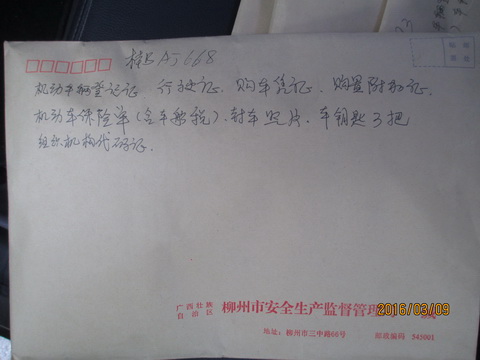 桂BAJ668
机动车辆登记证、行驶证、购车凭证、购置附加证、
机动车保险单(含车船税)、轿车照片、车钥匙3把
组织机构代码证.
贴邮
票处
广西壮族
自治区
柳州市安全生产监督管理
地址：柳州市三中路66号
邮政编码 545001
2016/03/09